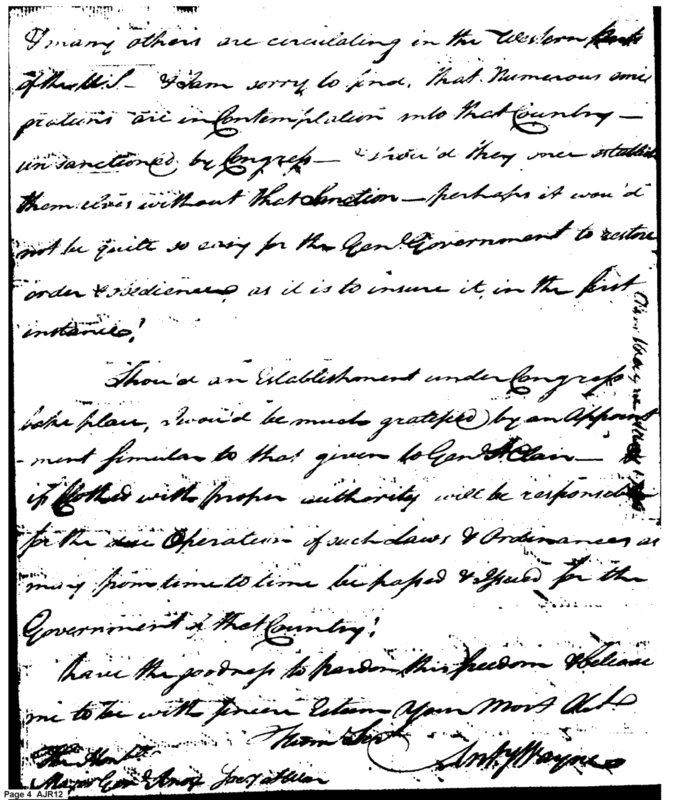 & many others are circulating in the Western parts
of the U.S— & I am sorry to find, that Numerous emi
grations are in Contemplation into that Country—
unsanctioned by Congress— & shou'd they once establish
themselves without that Sanction— perhaps it wou'd
not be quite so easy for the Genl. Government to restore
order & obedience, as it is to insure it, in the first
instance!
Shou'd an Establishment under Congress
take place, I wou'd be much gratified by an Appoint
-ment similar to that given to Genl St. Clair—
if Clothed with proper authority will be responsible
for the due Operation of such Laws & Ordinances as
may from time to time be passed & Issued for the
Government of that Country!
have the goodness to pardon this freedom & believe
me to be with sincere Esteem Your Most Obt
Huml Servt
Anty Wayne
The Honble
Major Genl Knox Secy at War
Page 4 AJR12